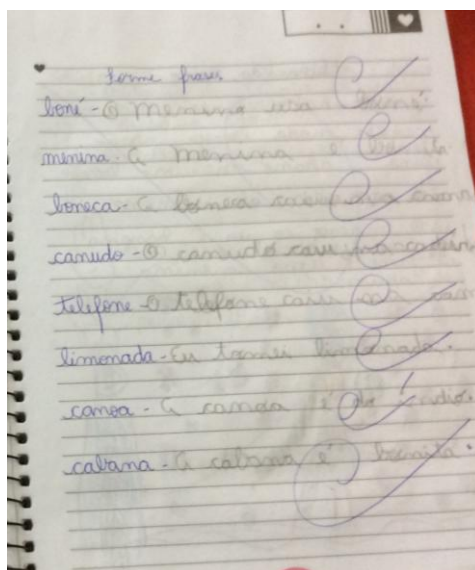 Forme frases
boné - O menino usa boné.
menina - A menina é bonita
boneca - A boneca caiu na
canudo - O canudo caiu
telefone - O telefone caiu na
limonada - Eu tomei limonada.
canoa - A canoa é do índio.
cabana - A cabana é bonita.